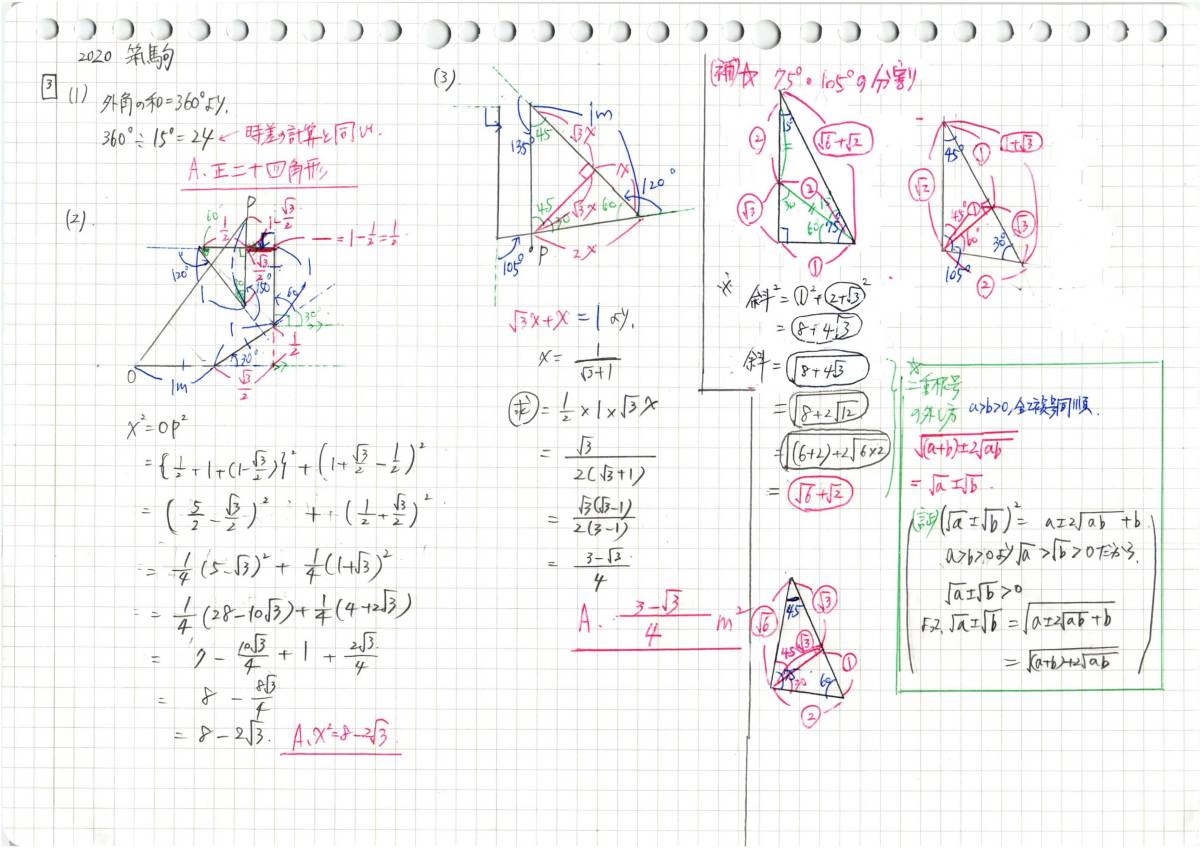 2020 筑駒
3 (1)
外角の和=360°より.
360°÷15°=24 ← 時差の計算と同じ.
A. 正二十四角形
(2)
P
60
1/2
√3/2
1
—=1-1/2=1/2
120°
√3/2
150°
60
1
1
1
1
30°
30°
1/2
O
1m
√3/2
x²=OP²
={1/2+1+(1-√3/2)}²+(1+√3/2-1/2)²
=(5/2-√3/2)² + (1/2+√3/2)²
=1/4(5-√3)²+1/4(1+√3)²
=1/4(28-10√3)+1/4(4+2√3)
=7-10√3/4+1+2√3/4
=8-8√3/4
=8-2√3. A. x²=8-2√3.
(3)
1m
135°
45
√3x
x
120°
45
30
√3x
60
105°
P
2x
√3x+x=1 より.
x=1/(√3+1)
求=1/2×1×√3x
=√3/(2(√3+1))
=√3(√3-1)/(2(3-1))
=(3-√3)/4
A. (3-√3)/4 m²
(補)☆ 75°・105°の分割
②
15°
√6+√2
√3
②
30
15
60
75°
①
√2
45°
①
1+√3
45°
①
60°
√3
30°
105°
②
※ 斜²=①²+(2+√3)²
=8+4√3
斜=√(8+4√3)
=√(8+2√12)
=√((6+2)+2√(6×2))
=√6+√2
√6
45
√3
45
√3
①
75
30
60
②
☆
二重根号
の外し方 a>b>0, 全て複号同順.
√((a+b)±2√ab)
=√a±√b.
(証)(√a±√b)²=a±2√ab+b
a>b>0より√a>√b>0だから.
√a±√b>0
よって. √a±√b=√(a±2√ab+b)
=√((a+b)+2√ab)